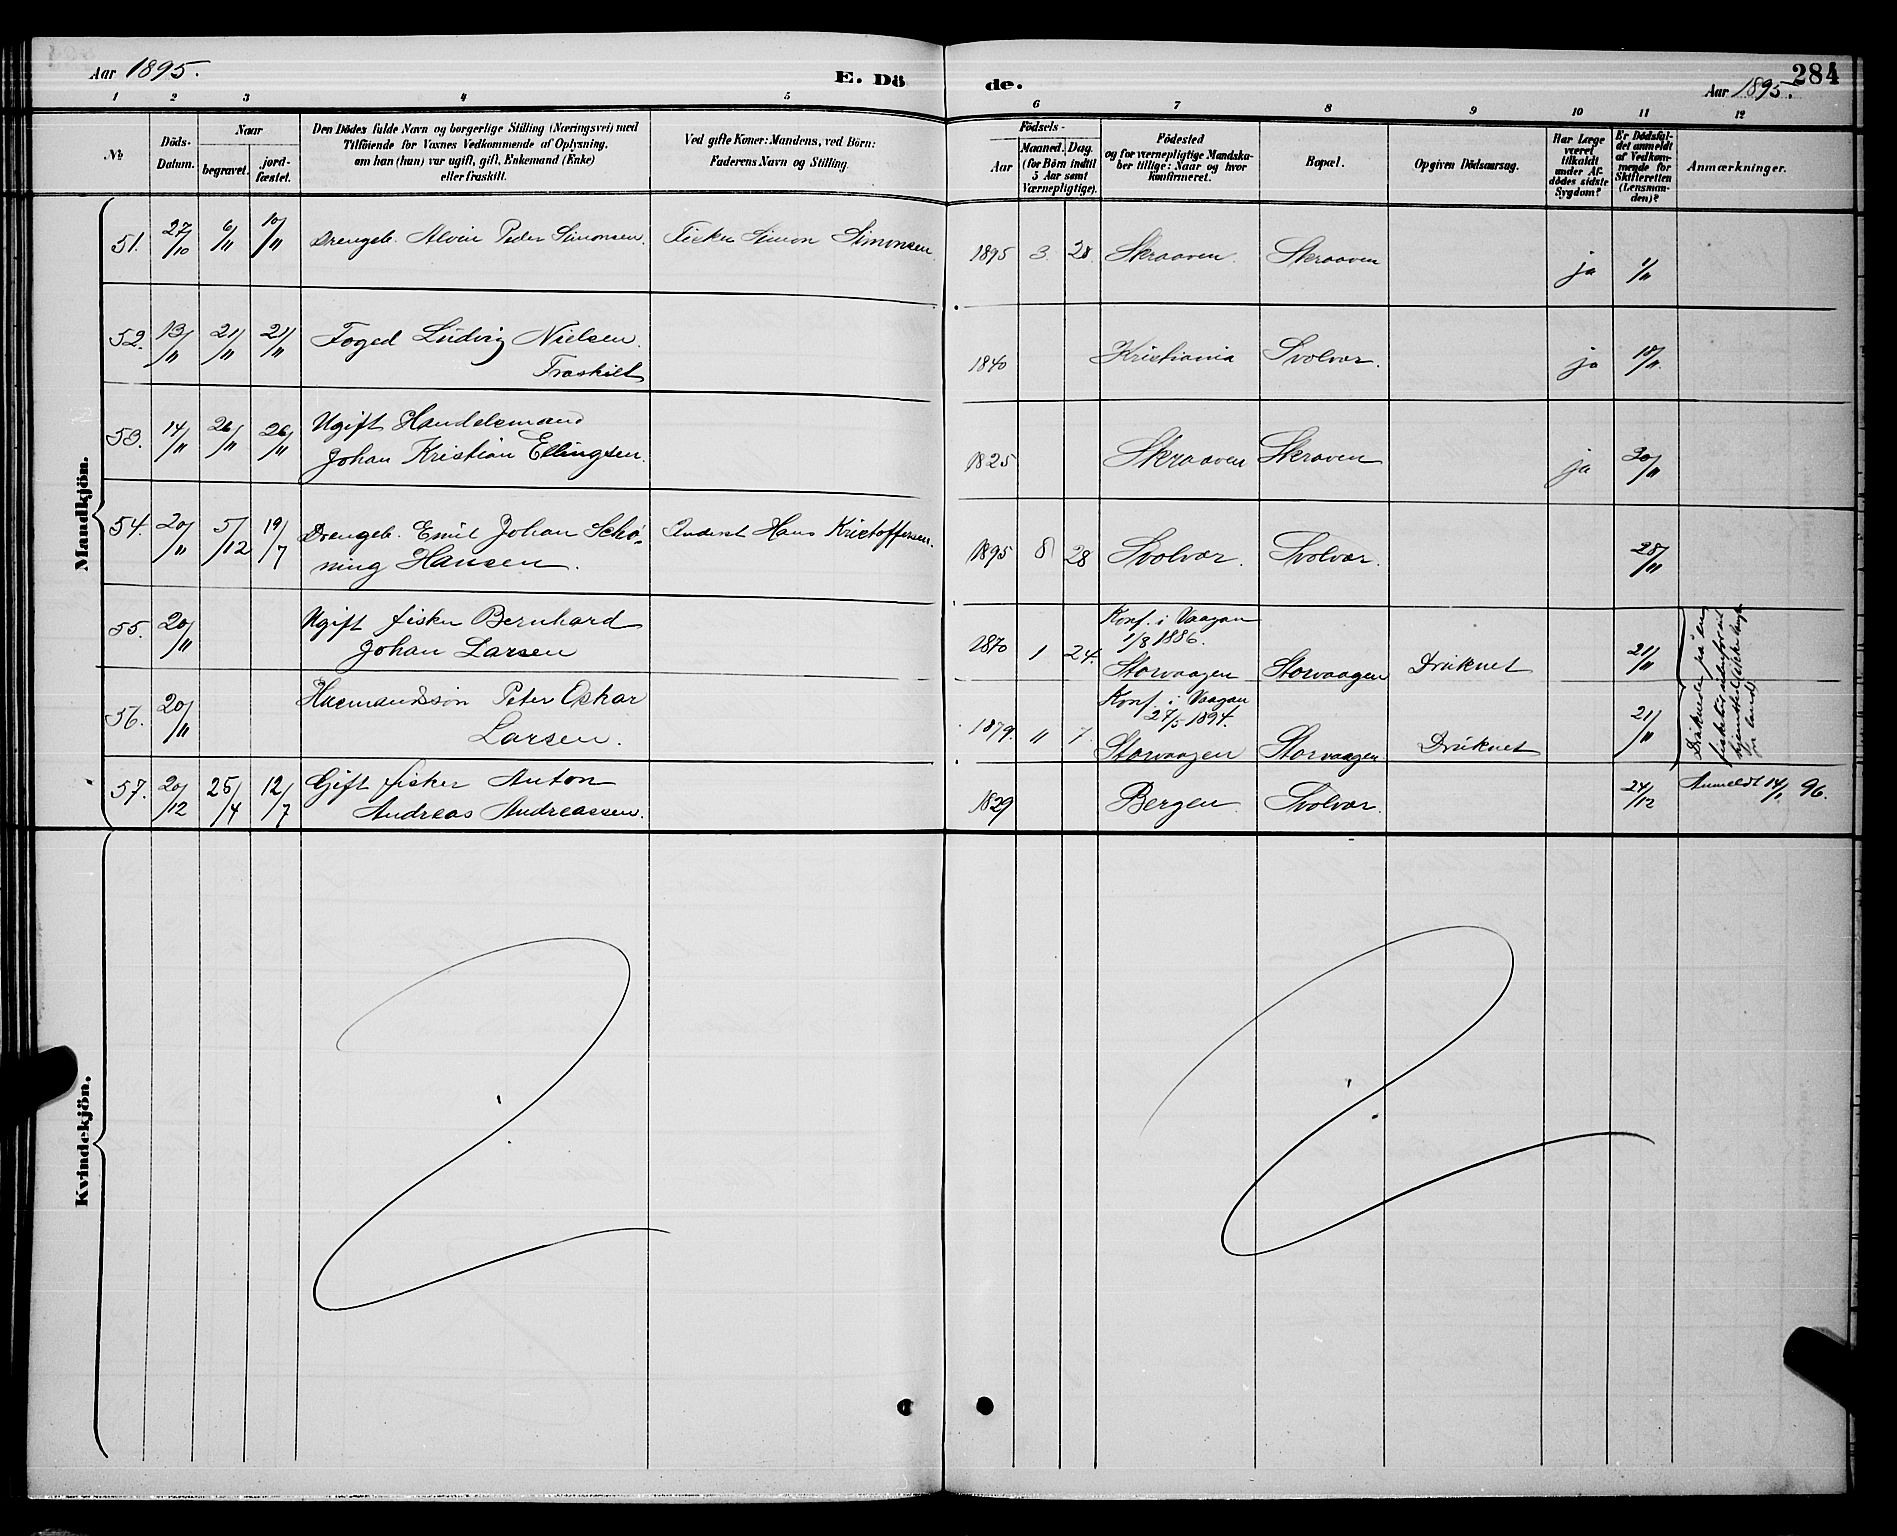 Aar 1895.
E. Dö
de.
284
Aar 1895.
1 2 3 4 5 6 7 8 9 10 11 12
No
Döds-
Datum.
Naar
begravet.
jord-
fæstet.
Den Dödes fulde Navn og borgerlige Stilling (Næringsvei) med
Tilföiende for Voxnes Vedkommende af Oplysning,
om han (hun) var ugift, gift, Enkemand (Enke)
eller fraskilt.
Ved gifte Koner: Mandens, ved Börn:
Faderens Navn og Stilling.
Födsels-
Aar
Maaned. Dag.
(for Börn indtil
5 Aar samt
Værnepligtige).
Födested
og for værnepligtige Mandska-
ber tillige: Naar og hvor
konfirmeret.
Bopæl.
Opgiven Dödsaarsag.
Har Læge
været
tilkaldt
under Af-
dödes sidste
Sygdom?
Er Dödsfal-
det anmeldt
af Vedkom-
mende for
Skifteretten
(Lensman-
den)?
Anmærkninger.
Mandkjön.
51. 27/10 6/11 10/11 Drengeb. Alvin Peder Simonsen. Fisker Simon Simonsen 1895 3. 28. Skraaven. Skraaven ja 1/11
52. 13/11 21/11 21/11 Foged Ludvig Nielsen.
Fraskilt
1840 Kristiania Svolvær. ja
53. 14/11 26/11 26/11 Ugift Handelsmand
Johan Kristian Ellingsen.
1825 Skraaven Skraaven ja 30/11
54. 20/11 5/12 19/7 Drengeb. Emil Johan Schø-
ning Hansen.
Hans Kristoffersen. 1895 8 28 Svolvær. Svolvær. 28/11
55. 20/11 Ugift fisker Bernhard
Johan Larsen
1870 1 24. Konf. i Vaagan
1/8 1886.
Storvaagen Storvaagen Druknet 21/11
56. 20/11 Huusmandssøn Peter Oskar
Larsen.
1879. " 7. Konf. i Vaagan
27/5 1894.
Storvaagen Storvaagen Druknet 21/11
Druknede på en
57. 20/12 25/4 12/7 Gift fisker Anton
Andreas Andreassen.
1829 Bergen Svolvær. 24/12 Anmeldt 14/1 96.
Kvindekjön.